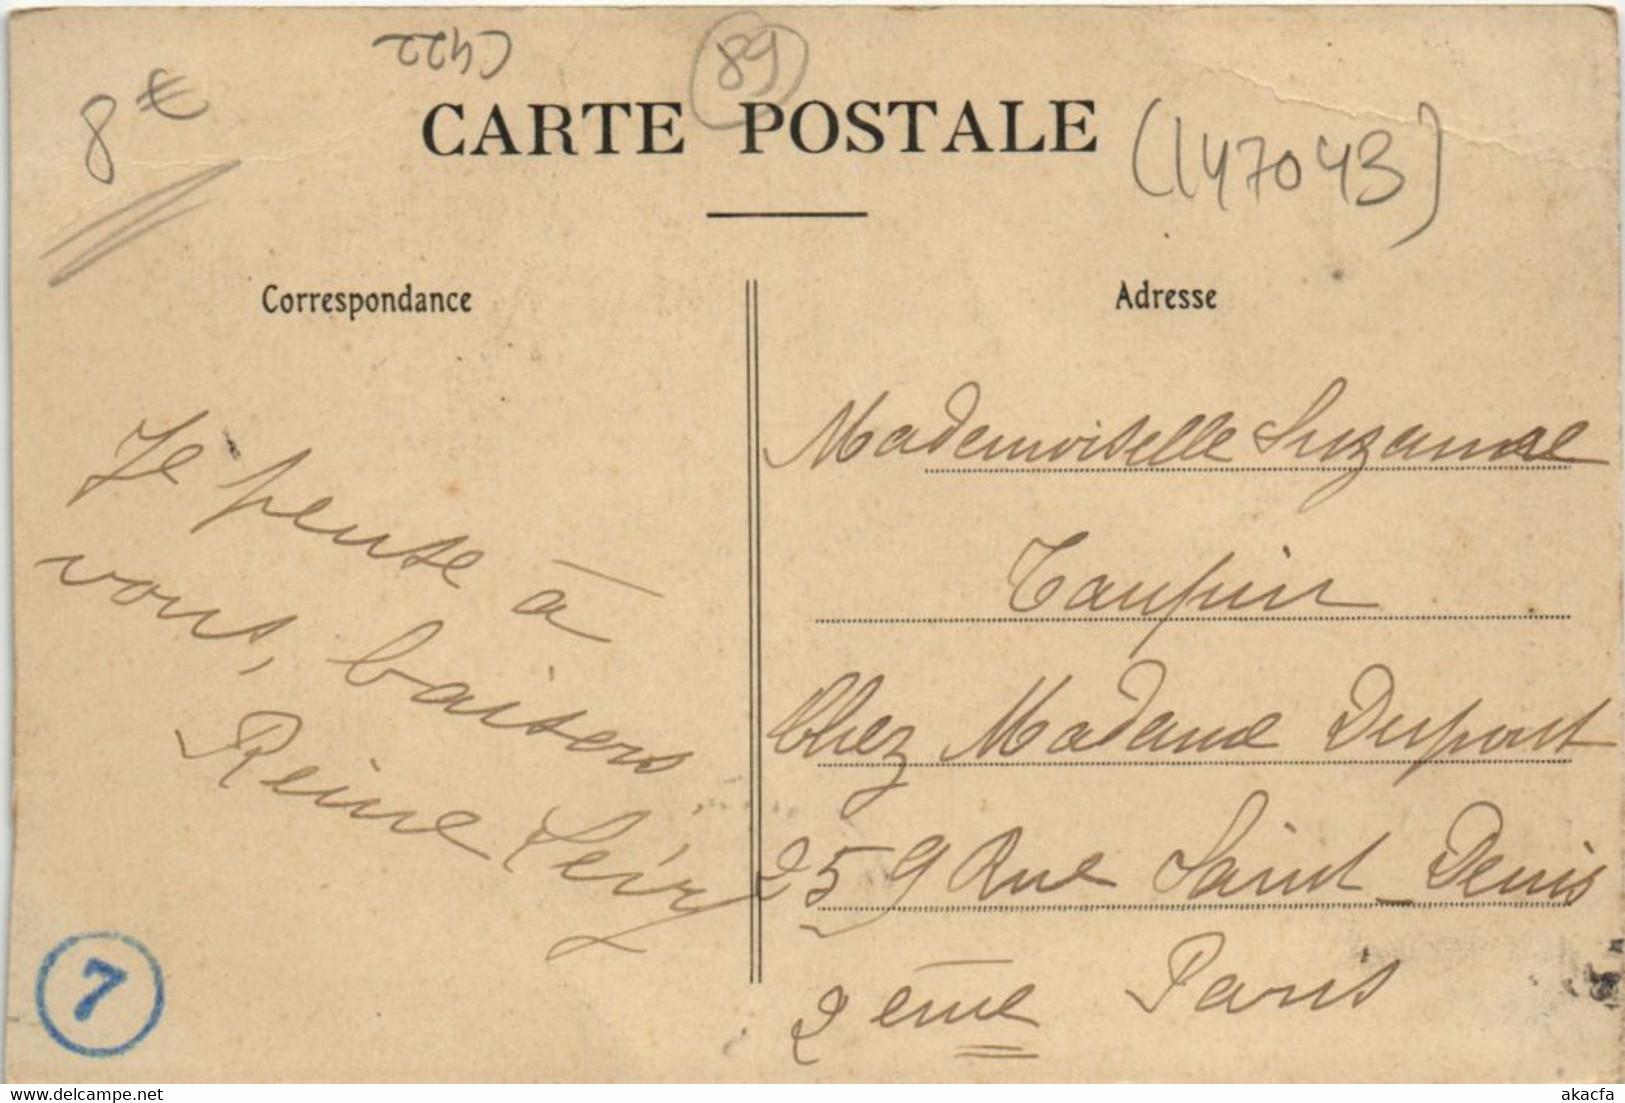 C422
89
8€
CARTE POSTALE
(147043)
Correspondance
Adresse
Je pense à
vous, baisers
Reine Lévy
7
Mademoiselle Suzanne
Taupin
Chez Madame Dupont
259 Rue Saint-Denis
2ème Paris
akacfa